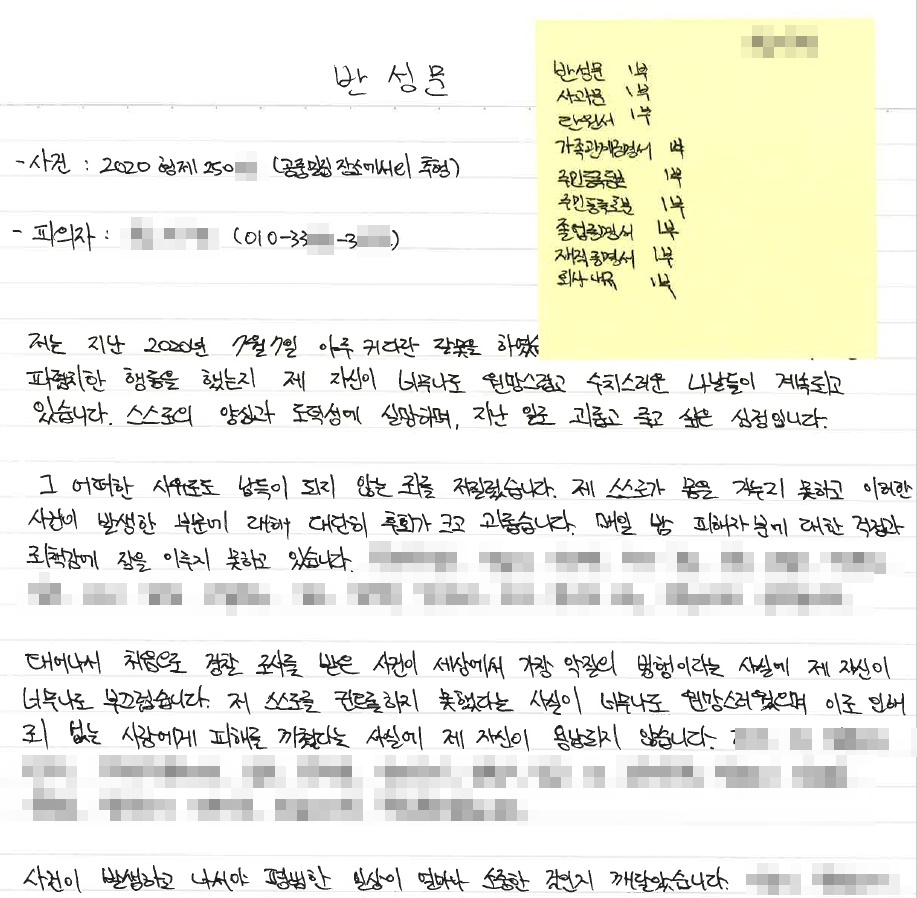 반성문
- 사건 : 2020 형제 250 (공중밀집장소에서의 추행)
- 피의자 : (010-33 -3 )
반성문 1부
사과문 1부
탄원서 1부
가족관계증명서 1부
주민등록등본 1부
주민등록초본 1부
졸업증명서 1부
재직증명서 1부
회사내규 1부
저는 지난 2020년 7월 7일 아주 커다란 잘못을 하였습
파렴치한 행동을 했는지 제 자신이 너무나도 원망스럽고 수치스러운 나날들이 계속되고
있습니다. 스스로의 양심과 도덕성에 실망하며, 지난 일로 괴롭고 죽고 싶은 심정입니다.
그 어떠한 사유로도 납득이 되지 않는 죄를 저질렀습니다. 제 스스로가 몸을 가누지 못하고 이러한
사건이 발생한 부분에 대해 대단히 후회가 크고 괴롭습니다. 매일 밤 피해자분에 대한 걱정과
죄책감에 잠을 이루지 못하고 있습니다.
태어나서 처음으로 경찰 조사를 받은 사건이 세상에서 가장 악질의 범행이라는 사실에 제 자신이
너무나도 부끄럽습니다. 제 스스로를 컨트롤하지 못했다는 사실이 너무나도 원망스러웠으며 이로 인해
죄 없는 사람에게 피해를 끼쳤다는 사실에 제 자신이 용납되지 않습니다.
사건이 발생하고 나서야 평범한 일상이 얼마나 소중한 것인지 깨달았습니다.